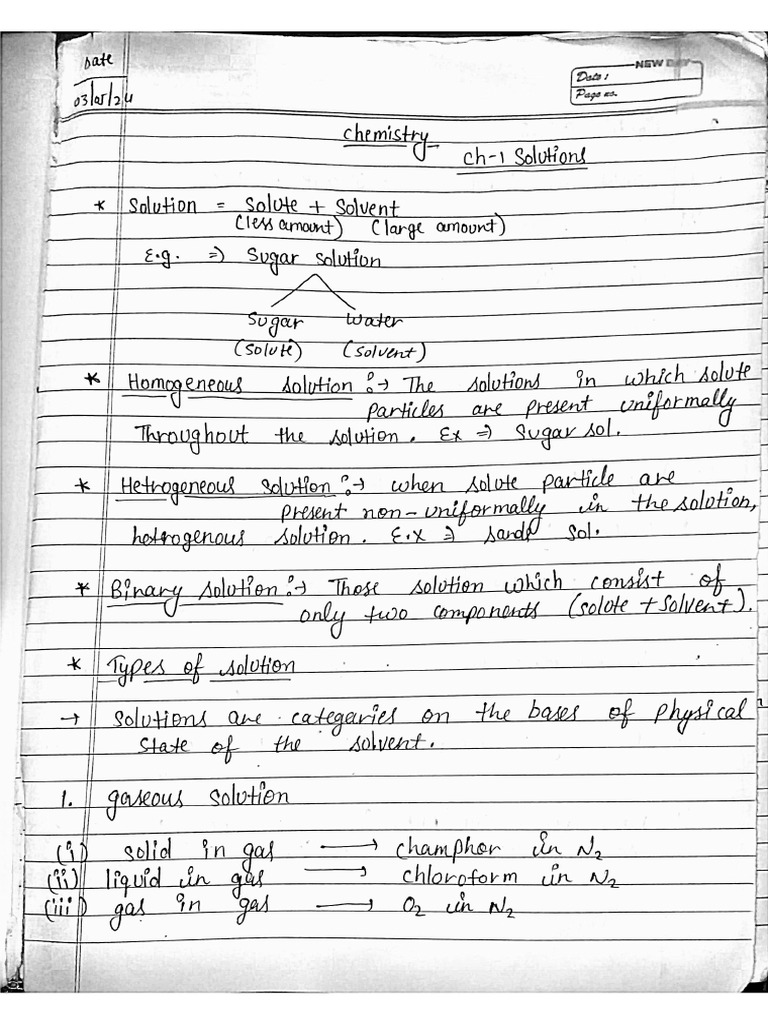 Date
03/05/24
NEW DAY
Date :
Page no.
Chemistry
Ch-1 Solutions
* Solution = Solute + Solvent
(less amount) (large amount)
E.g. => Sugar solution
Sugar Water
(Solute) (Solvent)
* Homogeneous solution :-> The solutions in which solute
particles are present uniformally
Throughout the solution. Ex => Sugar sol.
* Hetrogeneous solution :-> when solute particle are
present non-uniformally in the solution,
hetrogenous solution. E.x => sand sol.
* Binary solution :-> Those solution which consist of
only two components (solute + solvent).
* Types of solution
→ solutions are categaries on the bases of physical
state of the solvent.
1. gaseous solution
(i) solid in gas → champhor in N₂
(ii) liquid in gas → chloroform in N₂
(iii) gas in gas → O₂ in N₂